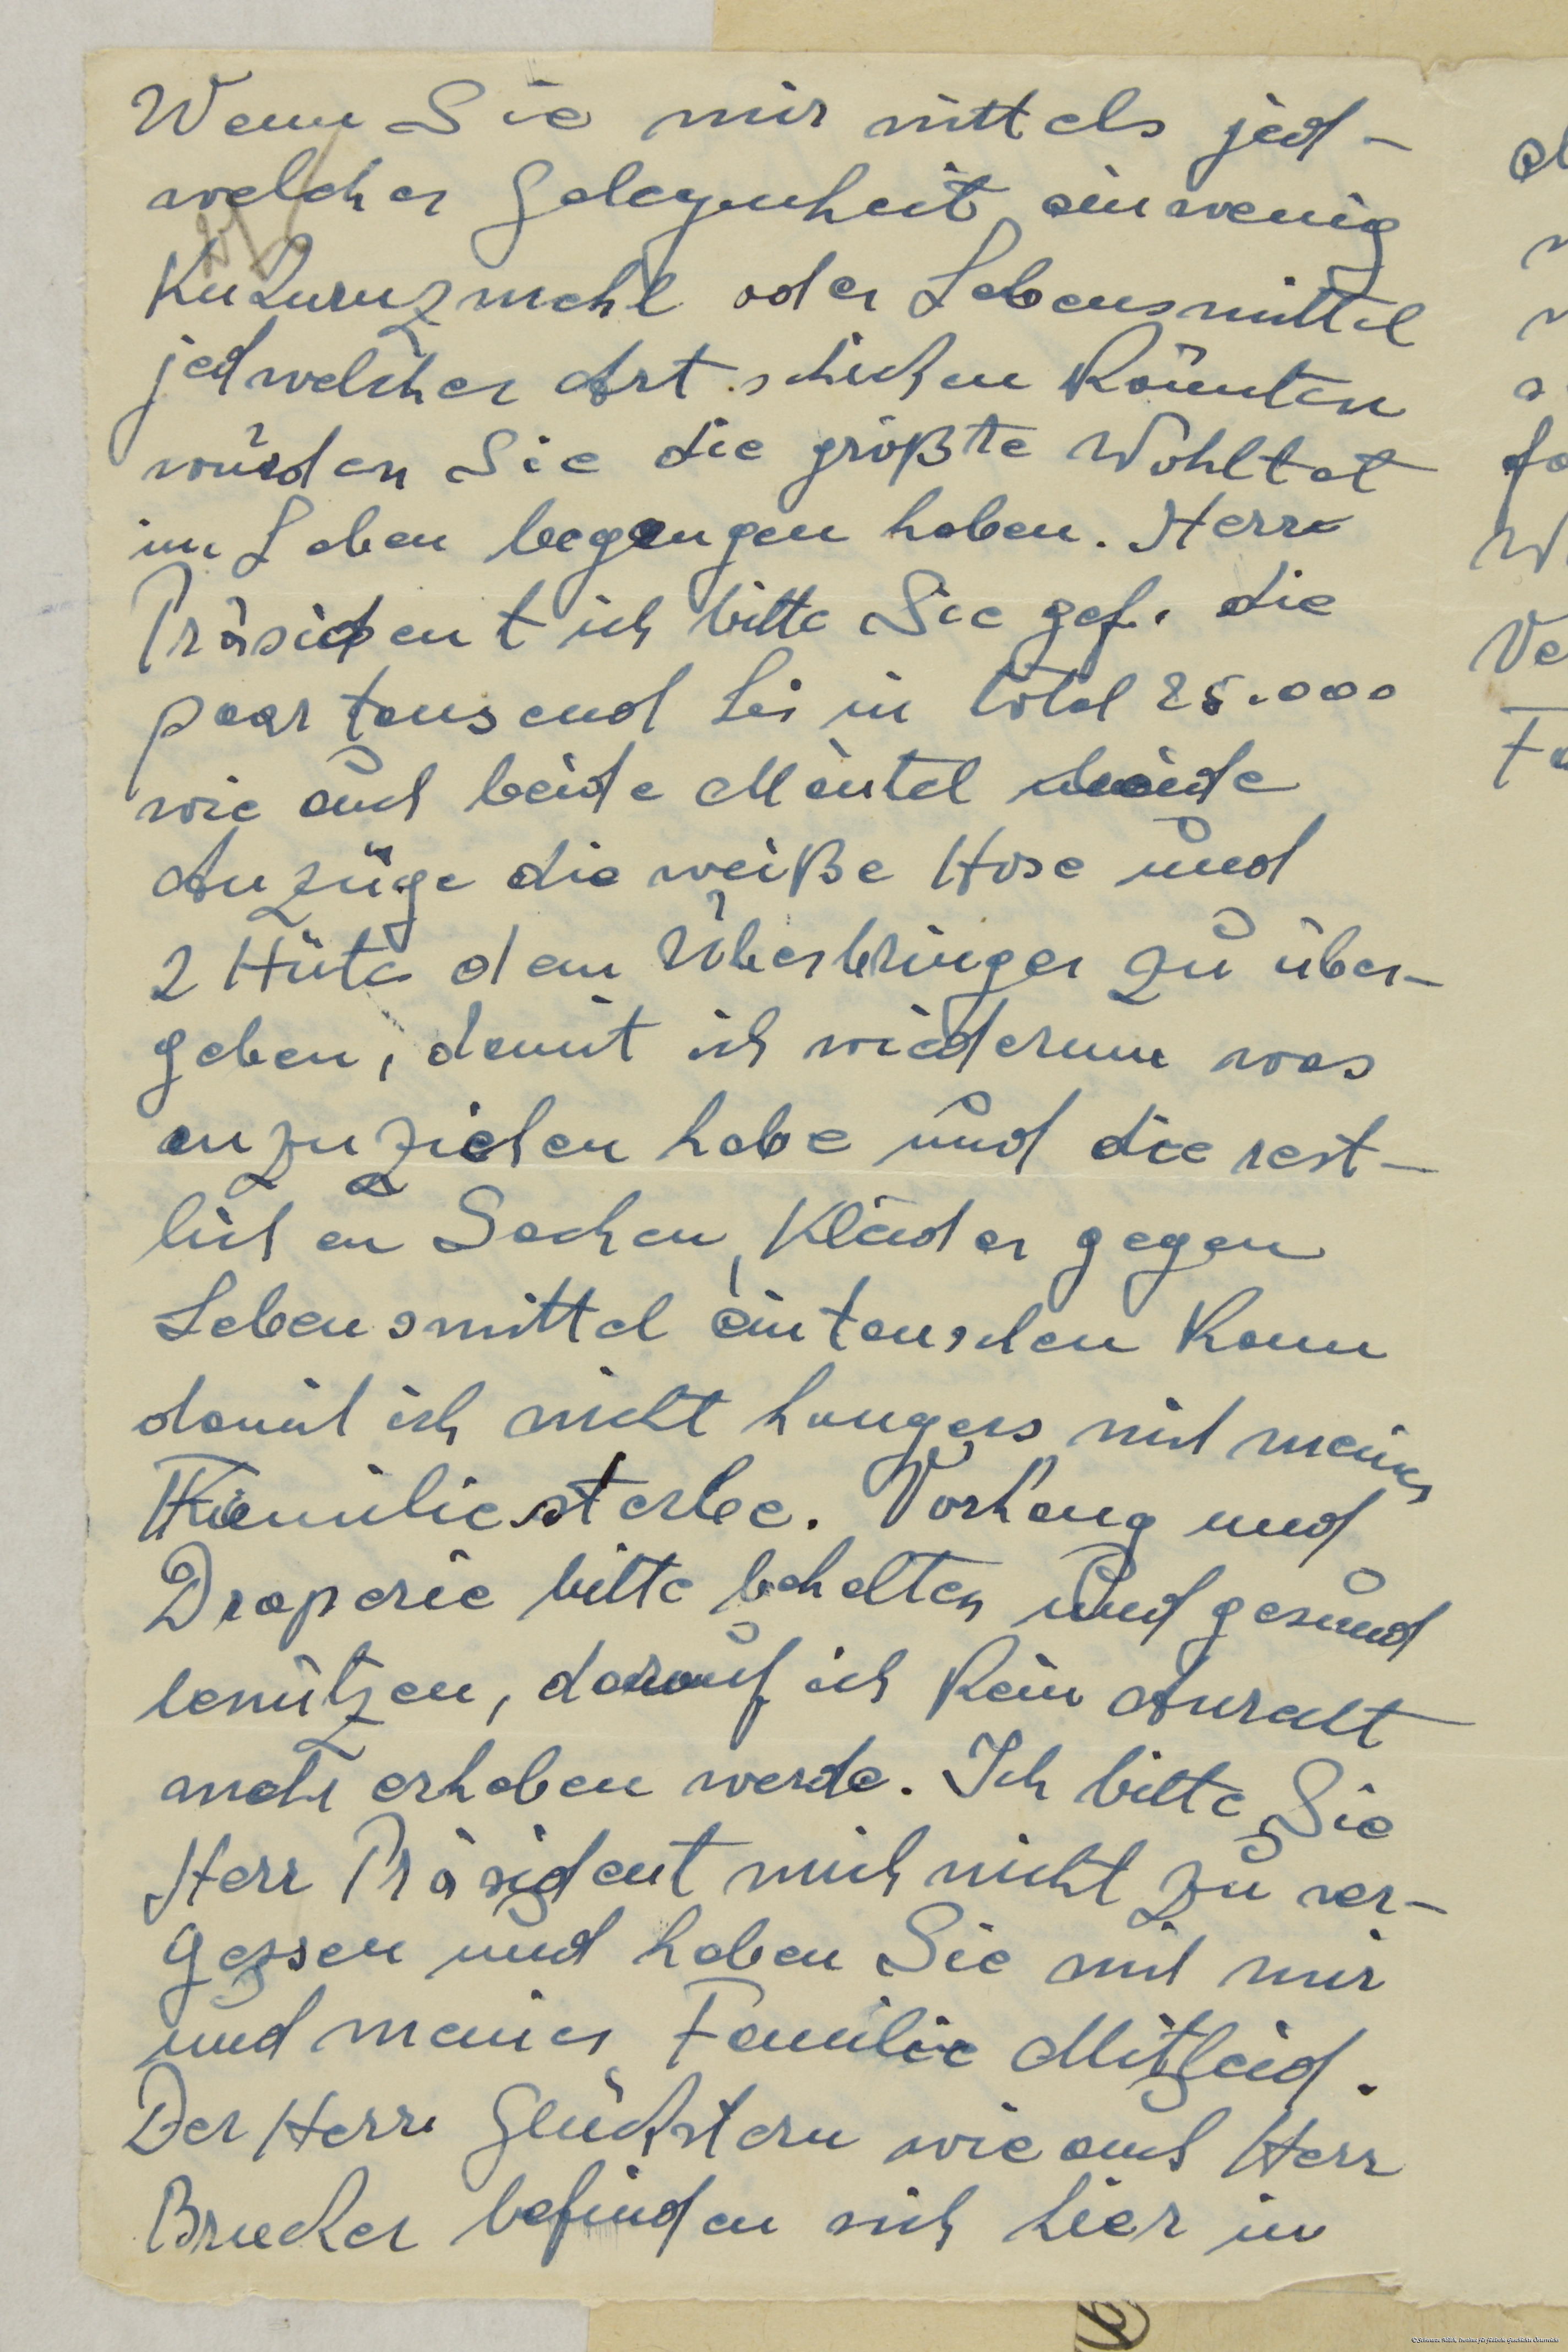 Wenn Sie mir mittels jed-
welcher Gelegenheit ein wenig
Kukuruzmehl oder Lebensmittel
jedwelcher Art schicken könnten
würden Sie die größte Wohltat
im Leben begangen haben. Herr
Präsident ich bitte Sie gef. die
paar tausend Lei in total 25.000
wie auch beide Mäntel beide
Anzüge die weiße Hose und
2 Hüte dem Überbringer zu über-
geben, damit ich wiederum was
anzuziehen habe und die rest-
lichen Sachen, Kleider gegen
Lebensmittel eintauschen kann
damit ich nicht hungers mit meiner
Familie sterbe. Vorhang und
Draperie bitte behalten und gesund
benützen, darauf ich kein Anrecht
mehr erheben werde. Ich bitte Sie
Herr Präsident mich nicht zu ver-
gessen und haben Sie mit mir
und meiner Familie Mitleid.
Der Herr Glückstern wie auch Herr
Brucker befinden sich hier in